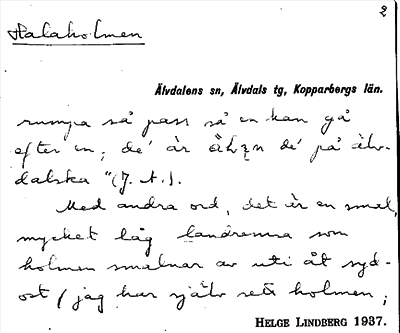 2
Halaholmen
Älvdalens sn, Älvdals tg, Kopparbergs län.
rumpa så pass så en kan gå
efter 'en; de' är de' på älv-
dalska" (J. A.).
Med andra ord, det är en smal,
mycket låg landremsa som
holmen smalnar av uti åt syd-
ost (jag har själv sett holmen;
HELGE LINDBERG 1937.